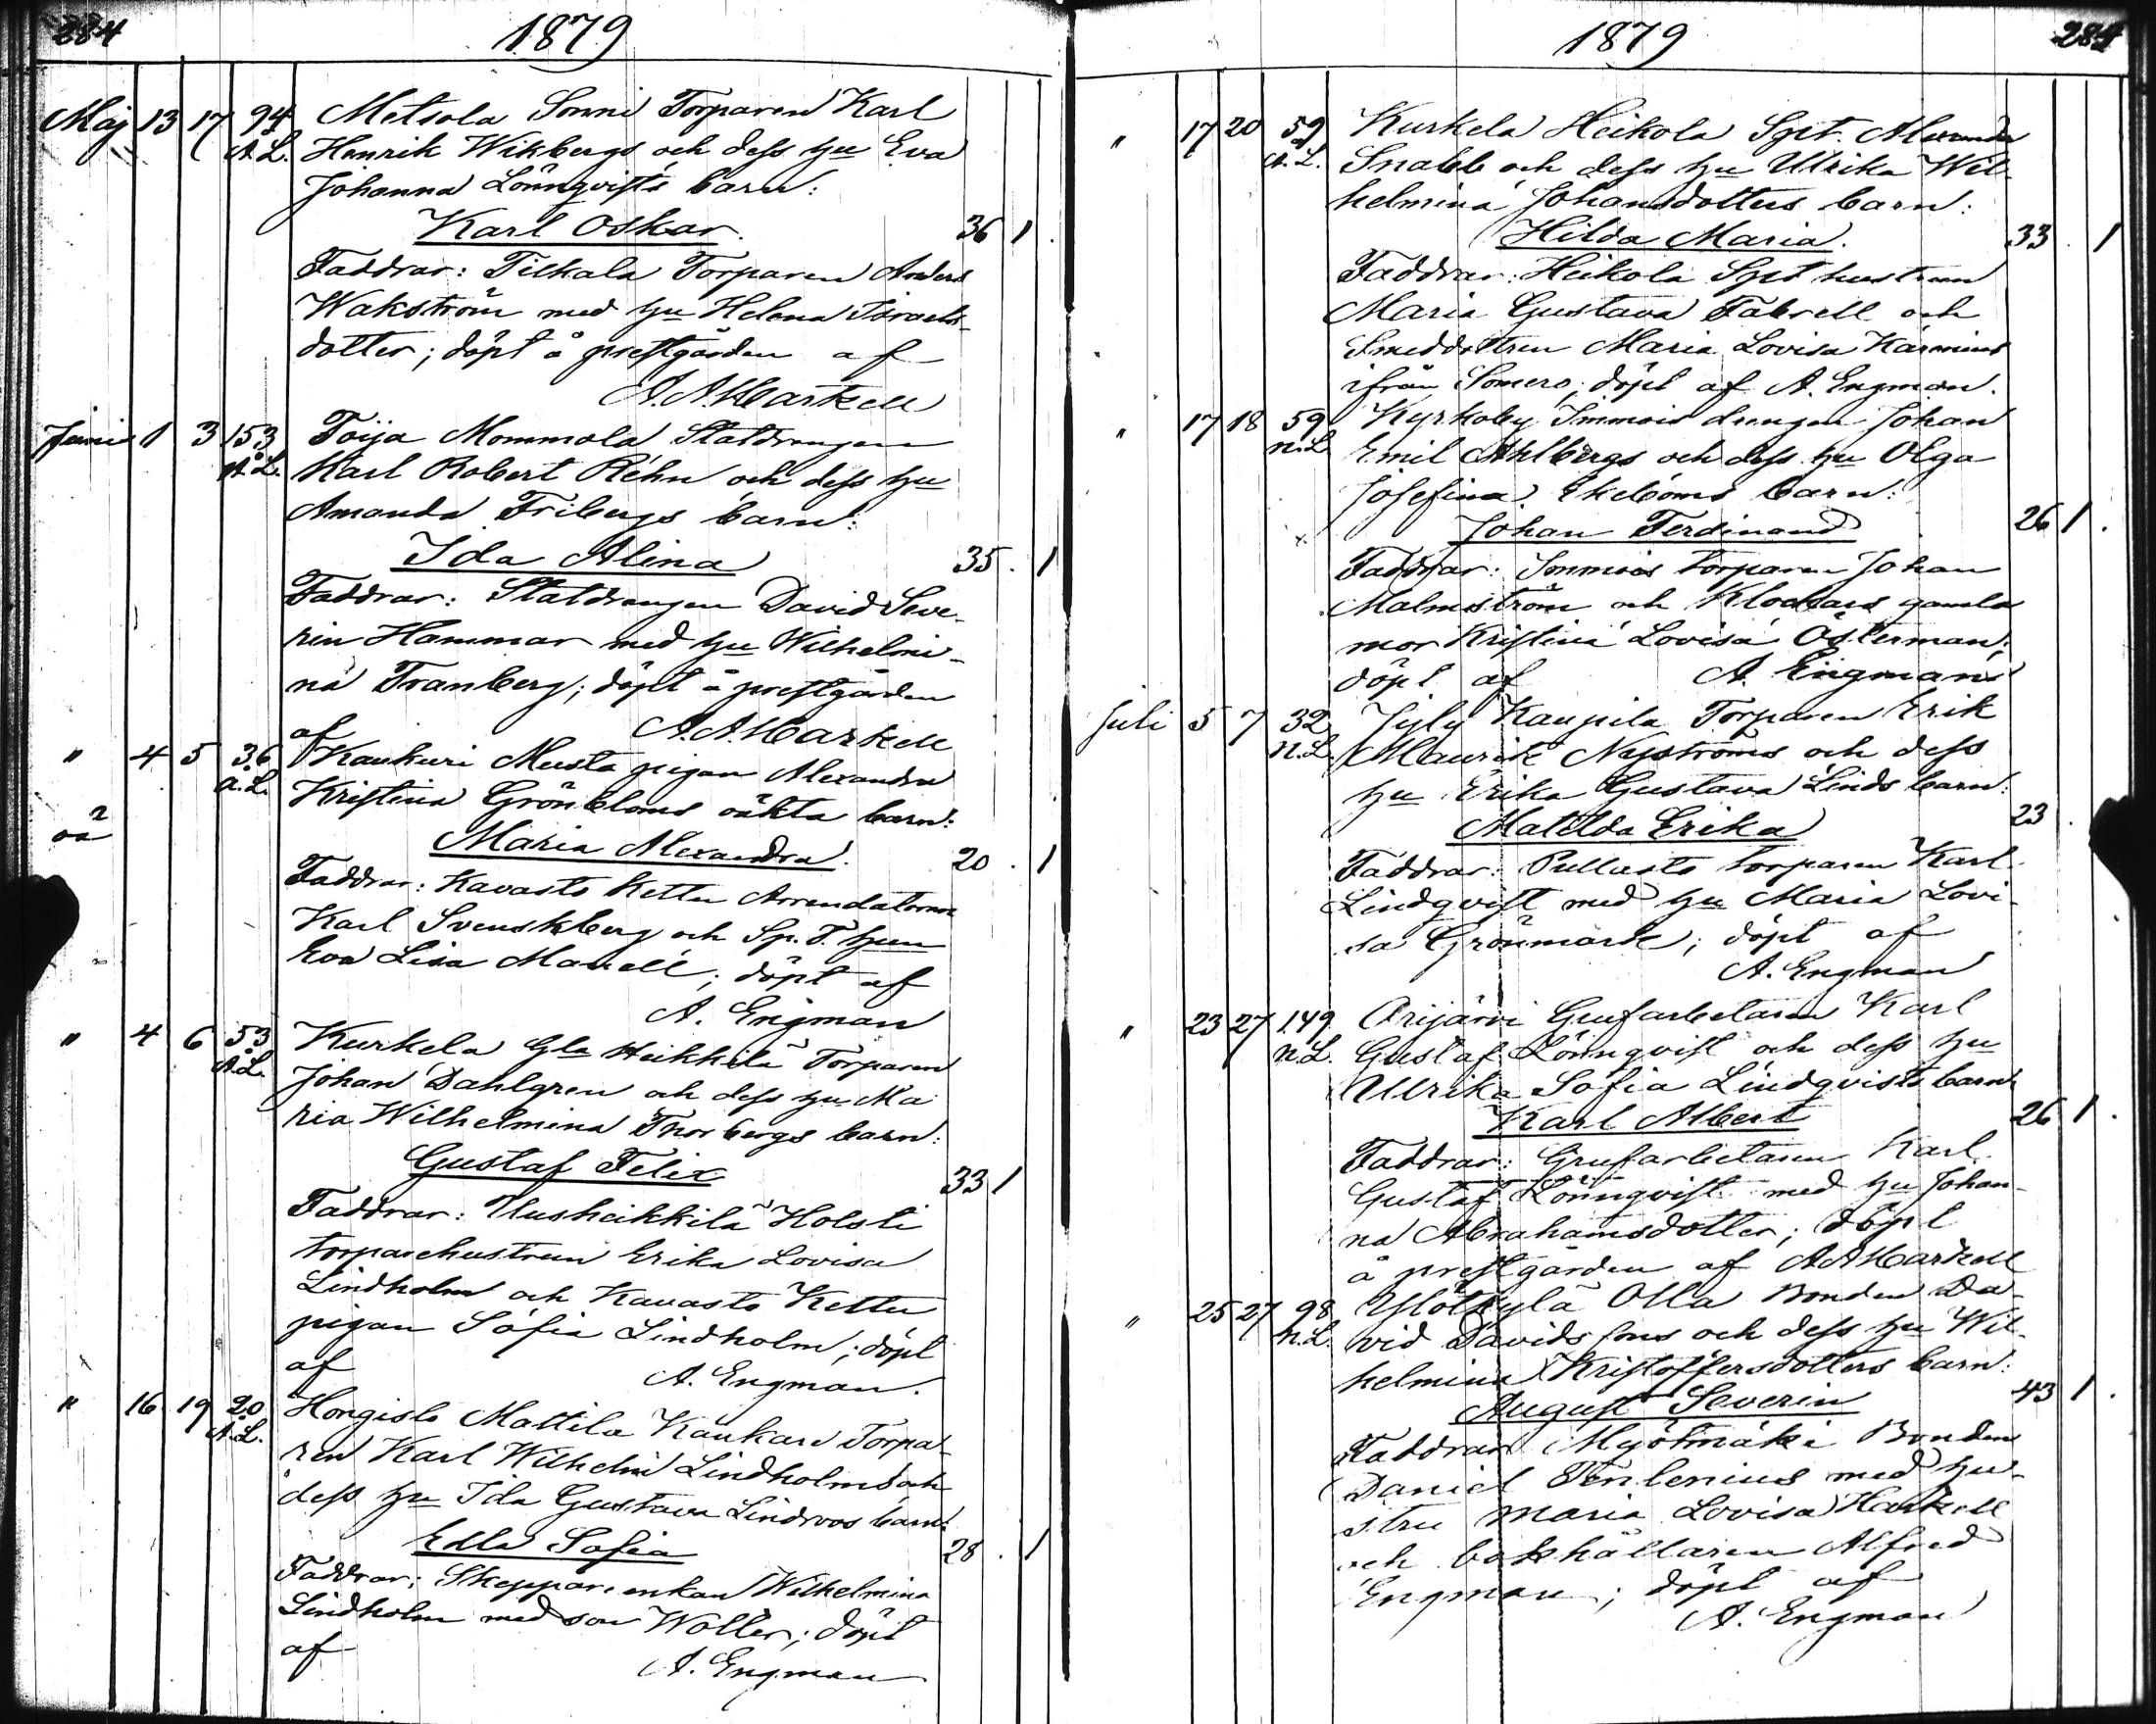 284
1879
Maj 13 17 94 Metsola Sonni Torparen Karl
A.L. Henrik Wikbergs och dess hu Eva
Johanna Lönnqvists barn:
Karl Oskar. 36 1
Faddrar: Tilkala Torparen Anders
Wakström med hu Helena Israels-
dotter; döpt å prestgården af
A.A. Markell
Juni 1 3 153 Toija Mommola Statdrängen
A.L. Karl Robert Rehn och dess hu
Amanda Fribergs barn:
Ida Alina 35. 1
Faddrar: Statdrängen David Seve-
rin Hammar med hu Wilhelmi-
na Tranberg; döpt å prestgården
af A.A. Markell
" 4 5 36 Kaukuri Musta pigan Alexandra
a.L. Kristina Grönbloms oäkta barn:
oä
Maria Alexandra. 20. 1
Faddrar: Kavasto Kettu Arrendatorn
Karl Svenskberg och Sp. T. hun
Eva Lisa Mavell; döpt af
A. Engman
" 4 6 53 Kurkela Gla Heikkilä Torparen
A.L. Johan Dahlgren och dess hu Ma
ria Wilhelmina Thorbergs barn:
Gustaf Felix 33 1
Faddrar: Uusheikkilä Holsti
torparehustrun Erika Lovisa
Lindholm och Kavasto Kettu
pigan Sofia Lindholm; döpt
af A. Engman.
" 16 19 20 Hongisto Mattila Kaukari Torpa-
A.L. ren Karl Wilhelm Lindholms och
dess hu Ida Gustava Lindroos barn:
Edla Sofia 28. 1
Faddrar: Skeppareenkan Wilhelmina
Lindholm med son Wolter; döpt
af A. Engman
1879
284
" 17 20 59 Kurkela Heikola Spt. Alexander
A.L. Snabb och dess hu Ulrika Wil-
helmina Johansdotters barn:
Hilda Maria. 33. 1
Faddrar: Heikola Spt hustrun
Maria Gustava Fabrell och
Smeddottren Maria Lovisa
ifrån Somero; döpt af A. Engman.
" 17 18 59 Kyrkoby Immois drengen Johan
n.L. Emil Ahlbergs och dess hu Olga
Josefina Ekeboms barn:
Johan Ferdinand 26 1.
Faddrar: Immois torparen Johan
Malmström och Klockars gamla
mor Kristina Lovisa Österman;
döpt af A. Engman
Juli 5 7 32 Jyly Kaupila Torparen Erik
n.L. Maurik Nyströms och dess
hu Erika Gustava Linds barn:
Matilda Erika 23.
Faddrar: Pullasto torparen Karl
Lindqvist med hu Maria Lovi-
sa Grönmark; döpt af
A. Engman
" 23 27 149 Orijärvi Grufarbetaren Karl
n.L. Gustaf Lönnqvist och dess hu
Ulrika Sofia Lindqvists barn
Karl Albert 26 1.
Faddrar: Grufarbetaren Karl
Gustaf Lönnqvist med hu Johan-
na Abrahamsdotter; döpt
å prestgården af A.A. Markell
" 25 27 98 Ylötkylä Olla Bonden Da-
n.L. vid Davidssons och dess hu Wil-
helmina Kristoffersdotters barn:
August Severin 43 1.
Faddrar Myötmäki Bonden
Daniel Tenlenius med hu-
stru Maria Lovisa Markell
och bokhållaren Alfred
Engman; döpt af
A. Engman